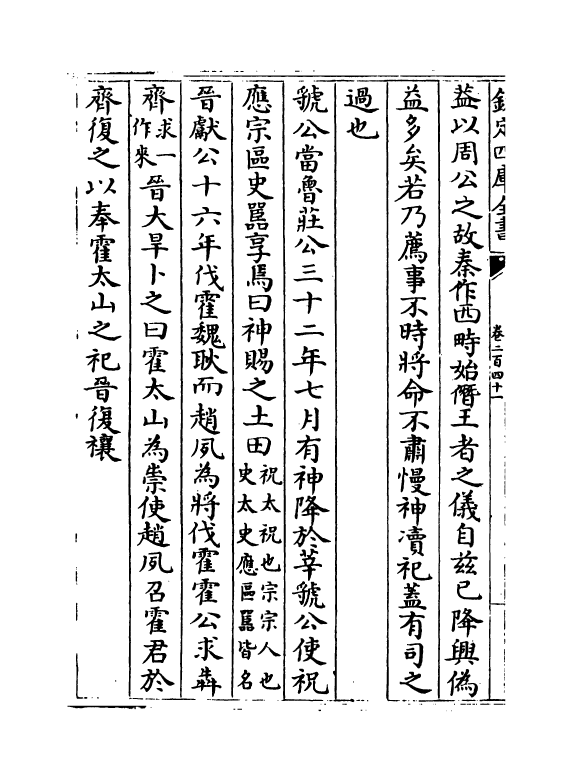 欽定四庫全書
卷二百四十一
益以周公之故秦作西畤始僭王者之儀自兹已降興偽
益多矣若乃薦事不時將命不肅慢神凟祀蓋有司之
過也
虢公當魯莊公三十二年七月有神降於莘虢公使祝
應宗區史嚚享焉曰神賜之土田祝太祝也宗宗人也史太史應區嚚皆名
晉獻公十六年伐霍魏耿而趙夙為將伐霍霍公求犇
齊求一作來晉大旱卜之曰霍太山為祟使趙夙召霍君於
齊復之以奉霍太山之祀晉復穰